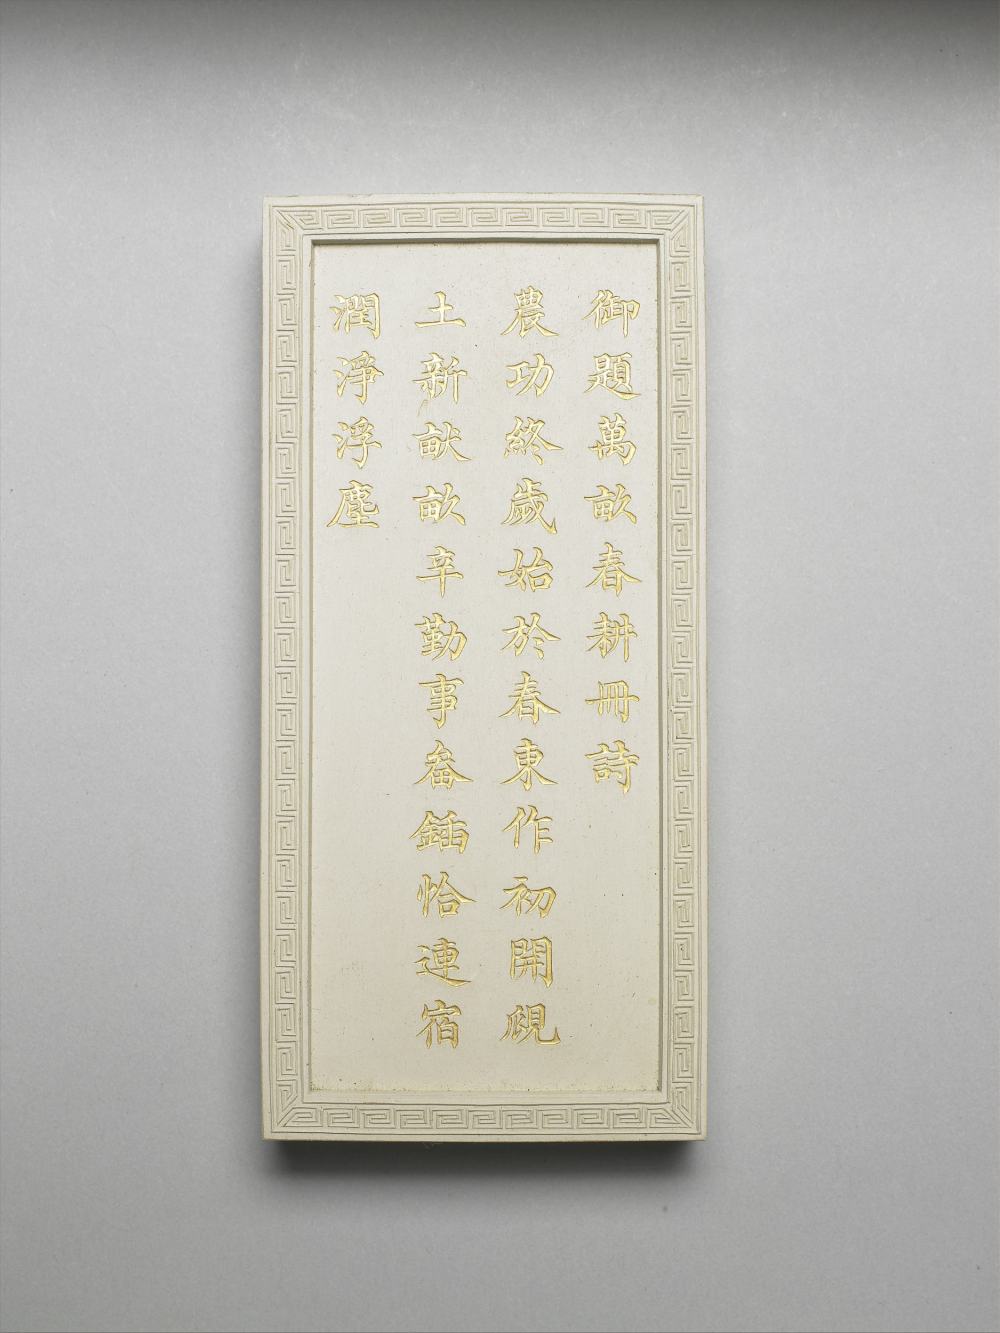 御題萬畝春耕冊詩
農功終歲始於春東作初開覛
土新畎畝辛勤事畚鍤恰連宿
潤淨浮塵